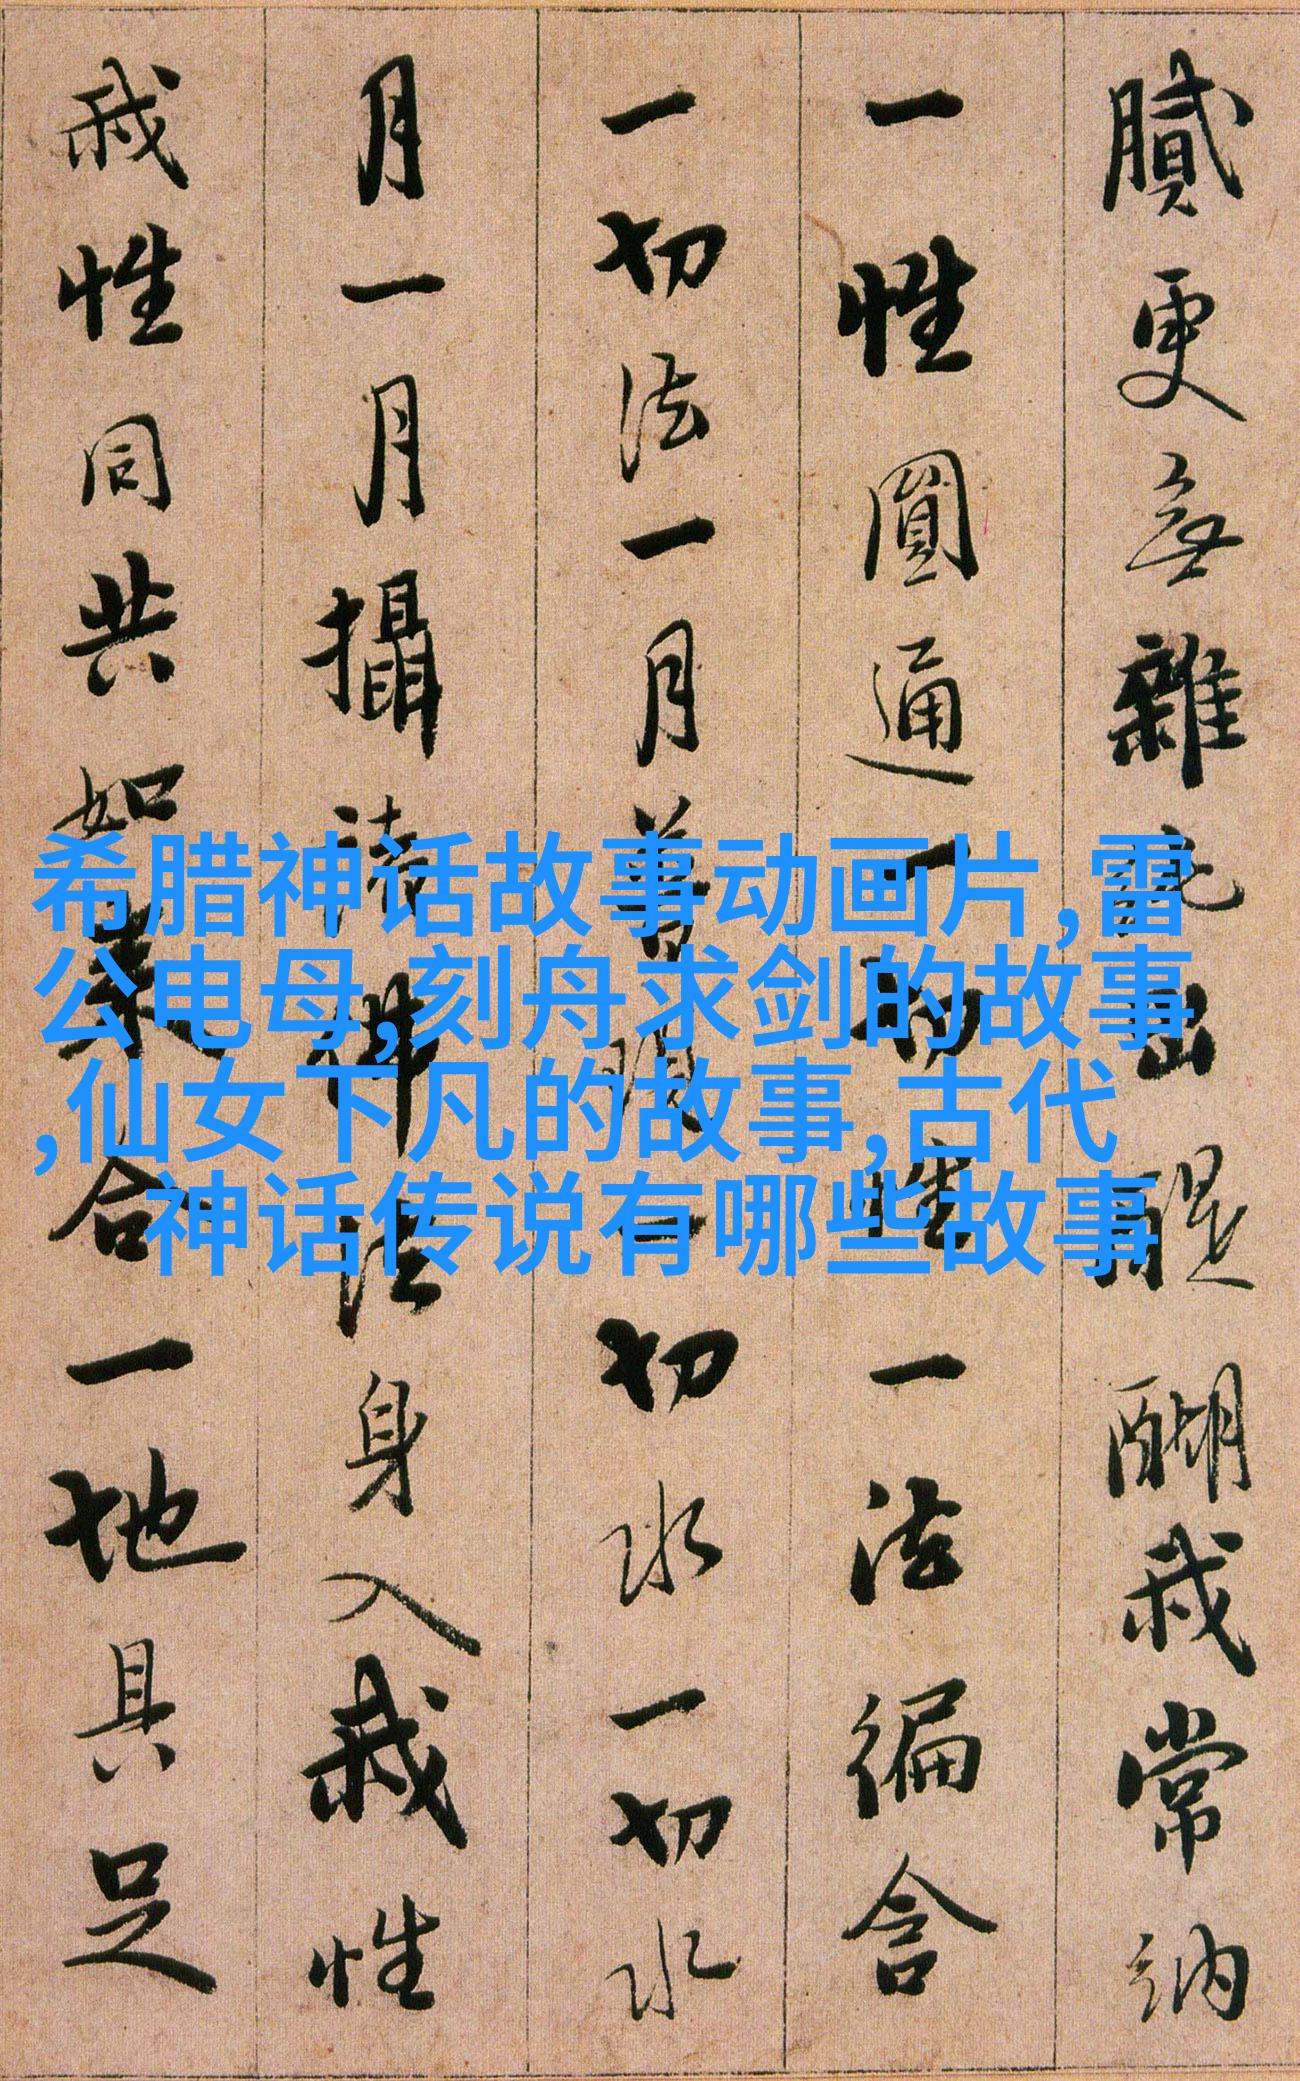 膩更無雜純出醍醐我常納
一性圓通一切性一法徧含
一切法一月普現一切水一切水
月一月攝諸佛法身入我性
我性同共如來合一地具足
希腊神话故事动画片,雷
公电母,刻舟求剑的故事
,仙女下凡的故事,古代
神话传说有哪些故事